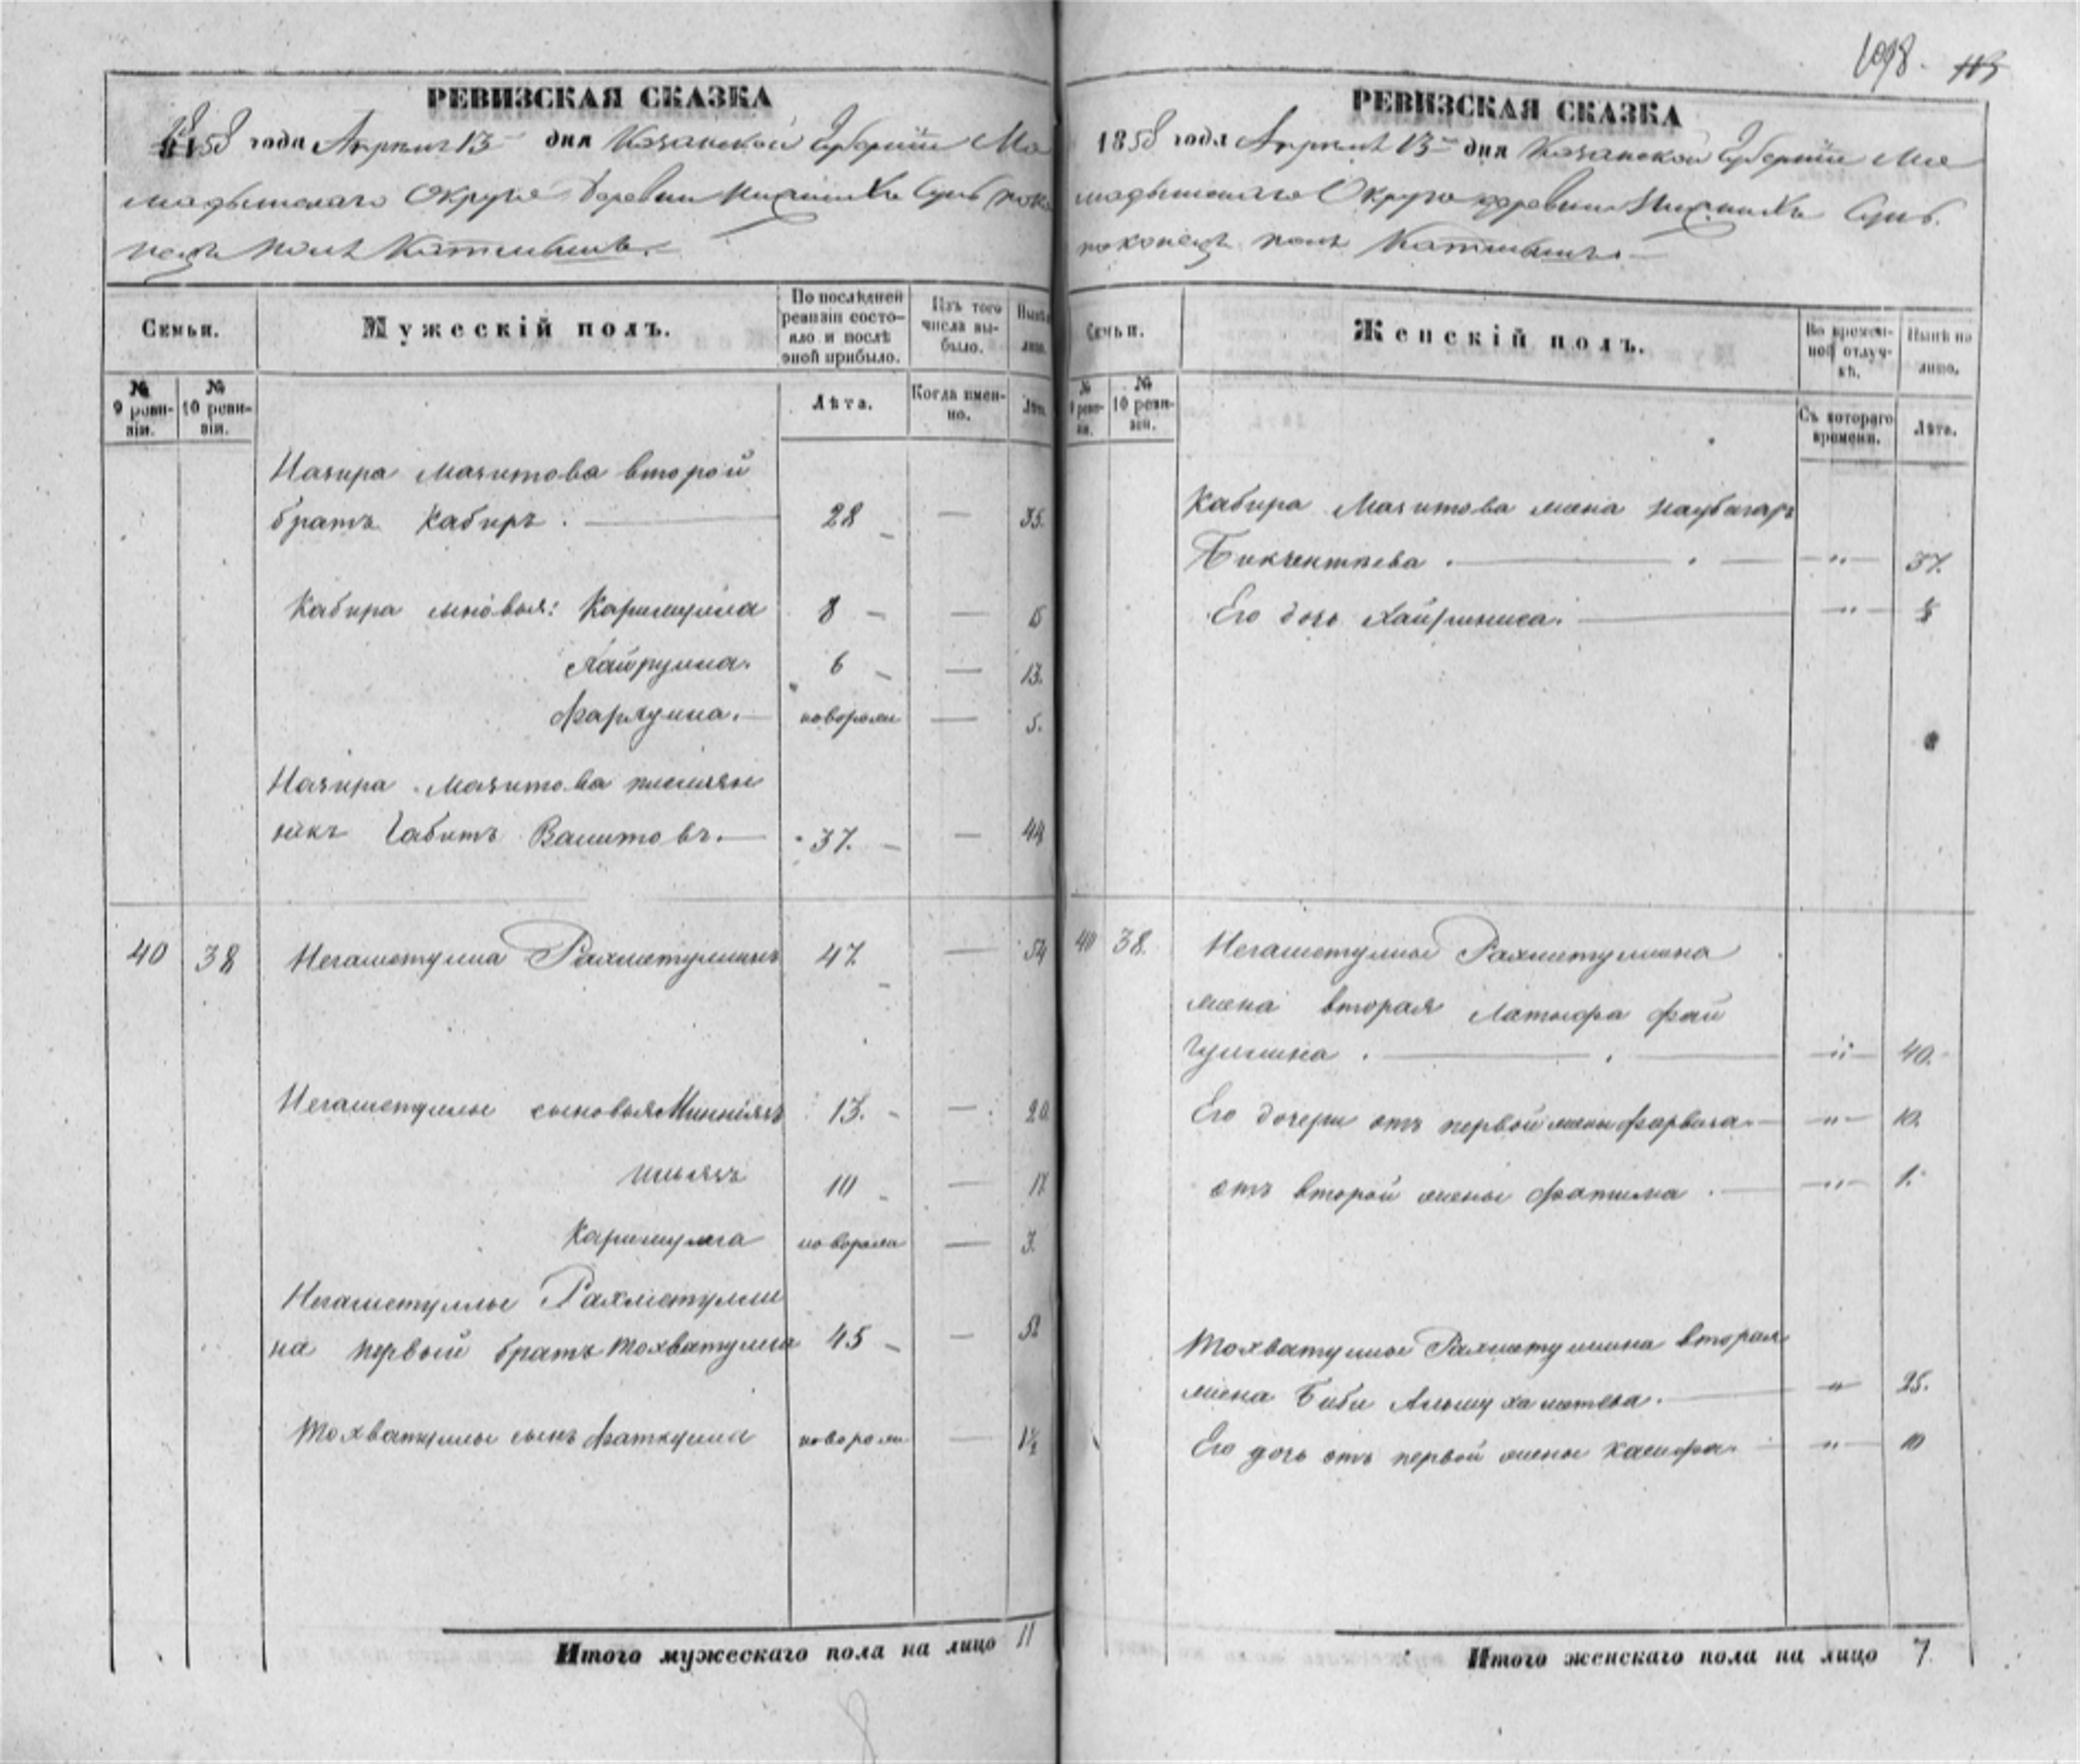 1098. 113
РЕВИЗСКАЯ СКАЗКА
1858 года Апреля 13 дня Казанской Губернии Ма
мадышскаго Округа Деревни Нижнихъ Сунь поко
нецъ поля Катмышъ.
Семьи.
Мужескій полъ.
По послѣдней ревизіи состояло и послѣ оной прибыло.
Изъ того числа выбыло.
Нынѣ лицо.
№ 9 ревизіи.
№ 10 ревизіи.
Лѣта.
Когда именно.
Лѣта.
Назира Мазитова второй
братъ Кабиръ. 28 — 35.
Кабира сыновья: Каримулла 8 — 15
Хайрулла. 6 — 13.
Фарзулла. новорожд — 5.
Назира Мазитова племян
никъ Габитъ Валитовъ. 37. — 44
40 38 Негаметулла Рахметуллинъ 47. — 54
Негаметуллы сыновья Миннiязъ 13. — 20
Ильязъ 10 — 17.
Каримулла новорожд — 3.
Негаметуллы Рахметулли
на первый братъ Тохватулла 45 — 52
Тохватуллы сынъ Фаткулла новорож — 1½
Итого мужескаго пола на лицо 11
РЕВИЗСКАЯ СКАЗКА
1858 года Апреля 13 дня Казанской Губернии Ма
мадышскаго Округа деревни Нижнихъ Сунь.
поконецъ поля Катмышъ.
Семьи.
Женскій полъ.
Во временной отлучкѣ.
Нынѣ на лицо.
№ 9 ревизіи.
№ 10 ревизіи.
Съ котораго времени.
Лѣта.
Кабира Мазитова жена Наубагаръ
Бикчентаева. — „ — 37.
Его дочь Хайриниса. — „ —
40 38. Негаметуллы Рахметуллина
жена вторая Латыфа Фай
зуллина. — „ — 40.
Его дочери отъ первой жены Фарваза. — „ — 10.
отъ второй жены Фатима. — „ — 1.
Тохватуллы Рахметуллина вторая
жена Биби Альмухаметева. — „ — 25.
Его дочь отъ первой жены Кашфа. — „ — 10
Итого женскаго пола на лицо 7.